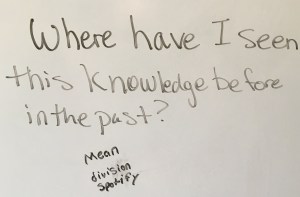 Where have I seen
this knowledge before
in the past?
Mean
division
Spotify